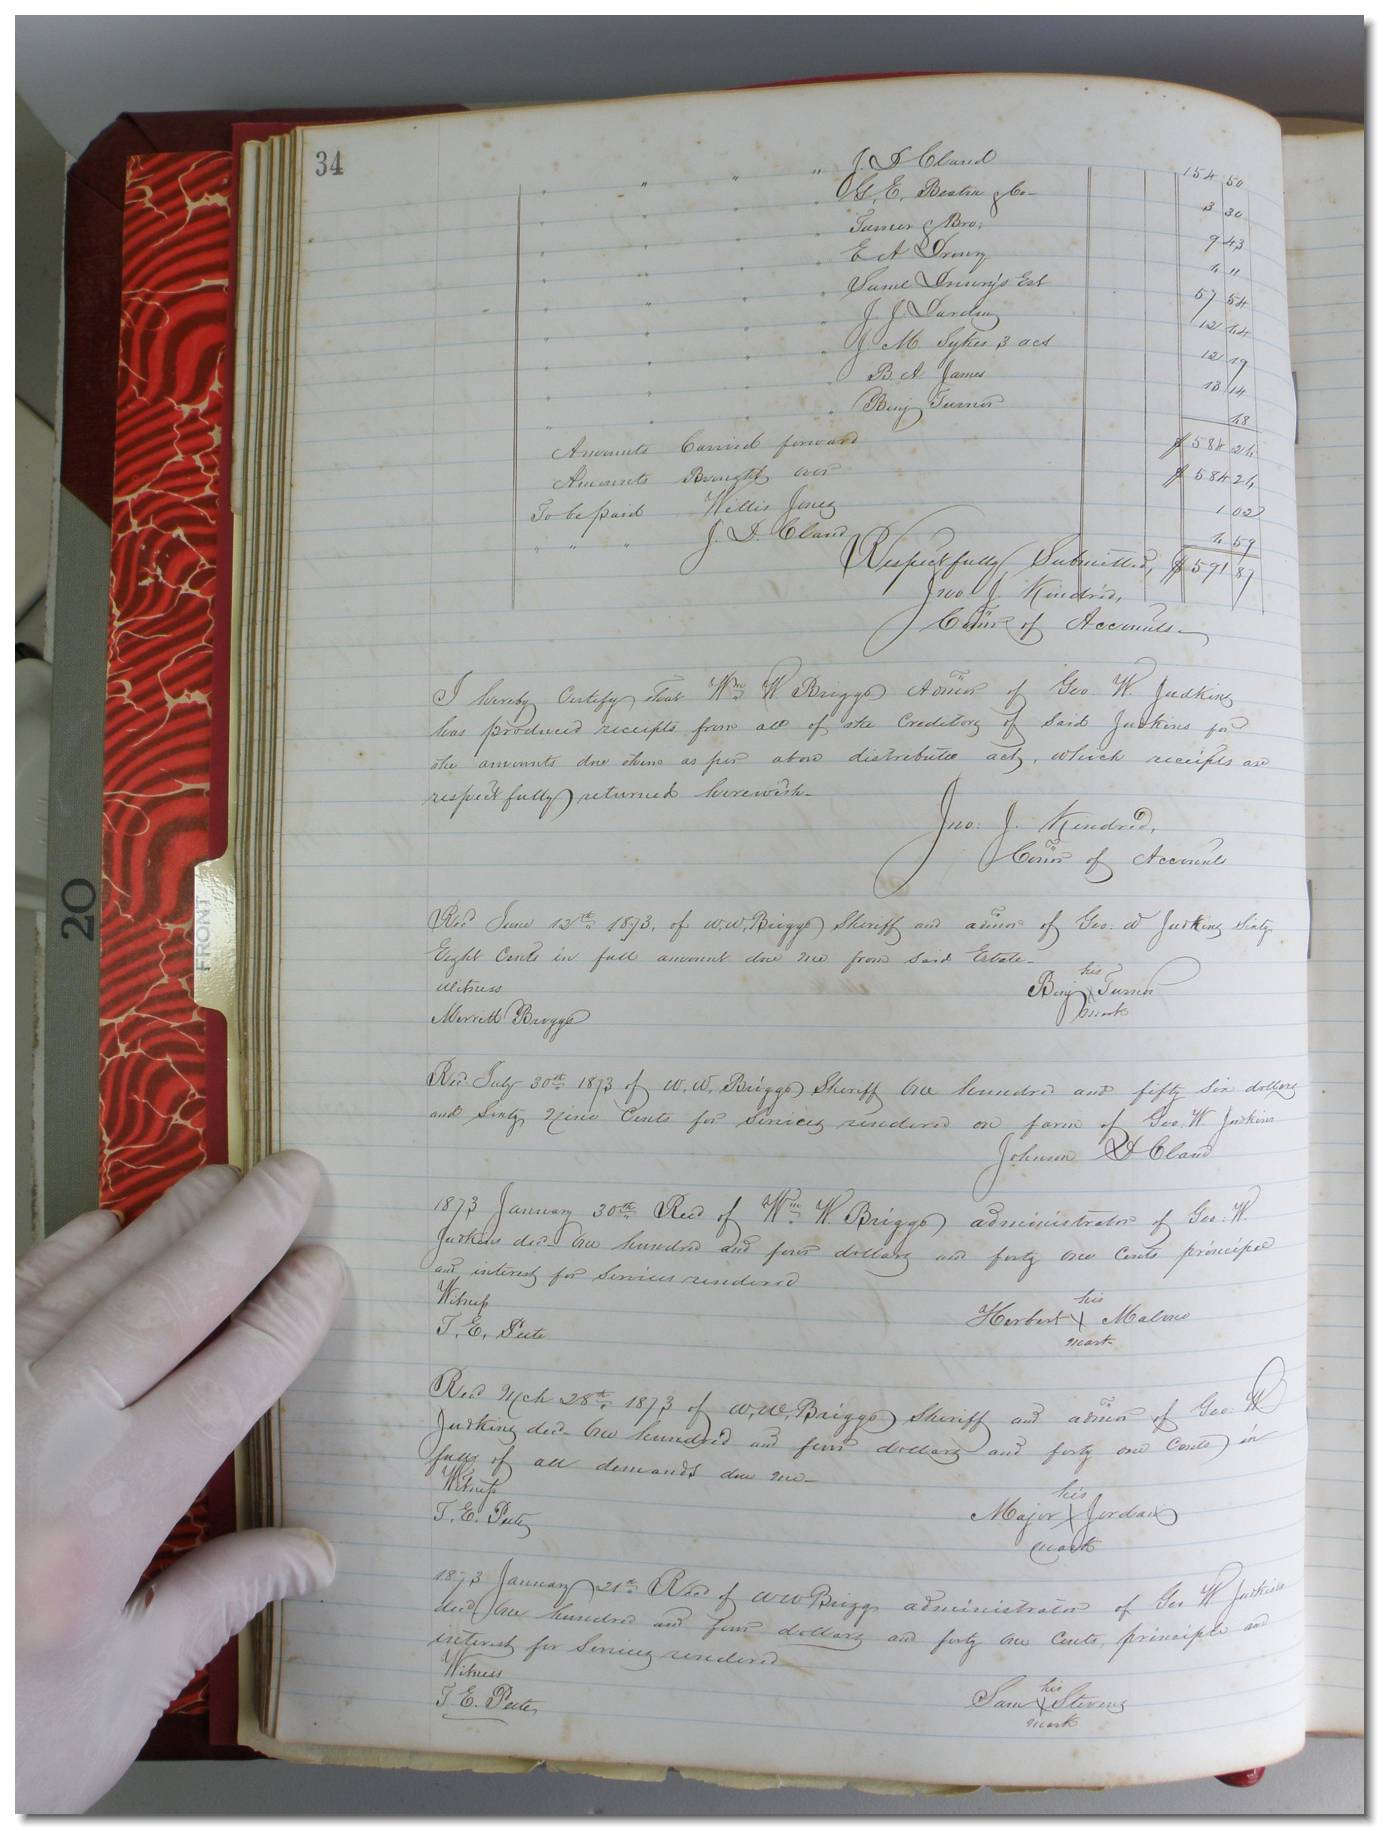 34
" " " " J. D. Cland 154 50
" " " " G. E. Beaton & Co— 3 30
" " " " Turner & Bro. 9 43
" " " " E A Drewry 4 11
" " " " Saml Drewry's Est 57 54
" " " " J. J. Darden 12 44
" " " " J. M. Sykes 3 acs 12 19
" " " " B. A. James 13 14
" " " " Benj Turner 68
Amounts Carried forward $584 26
Amounts Brought over $584 26
To be paid Willis Jones 1 02
" " " J. D. Cland 6 59
Respectfully Submitted, $591 87
Jno. J. Kindred,
Comr of Accounts—
I hereby Certify that Wm W Briggs Admor of Geo. W. Judkins
has produced receipts from all of the Creditors of said Judkins for
the amounts due them as per above distributee acts, which receipts are
respectfully returned herewith—
Jno. J. Kindred,
Comr of Accounts
Recd June 12th 1873, of W.W. Briggs Sheriff and admor of Geo. W Judkins Sixty
Eight Cents in full amount due me from said Estate—
Witness his
Merrett Briggs Benj X Turner
mark
Recd July 30th 1873 of W. W. Briggs Sheriff One hundred and fifty six dollars
and Sixty Nine Cents for Services rendered on farm of Geo. W Judkins
Johnson D Cland
1873 January 30th Recd of Wm W. Briggs administrator of Geo. W.
Judkins decd One hundred and four dollars and forty one cents principle
and interest for Services rendered
Witness his
T. E. Pete Herbert X Malone
mark
Recd Mch 28th 1873 of W. W. Briggs Sheriff and admor of Geo. W
Judkins decd One hundred and four dollars and forty one Cents in
full of all demands due me—
Witness his
T. E. Pete Major X Jordan
mark
1873 January 21st Recd of W W Briggs administrator of Geo W Judkins
decd, One hundred and four dollars and forty One Cents, principle and
interest for Services rendered
Witness his
T. E. Pete Sam X Stevens
mark
FRONT
20